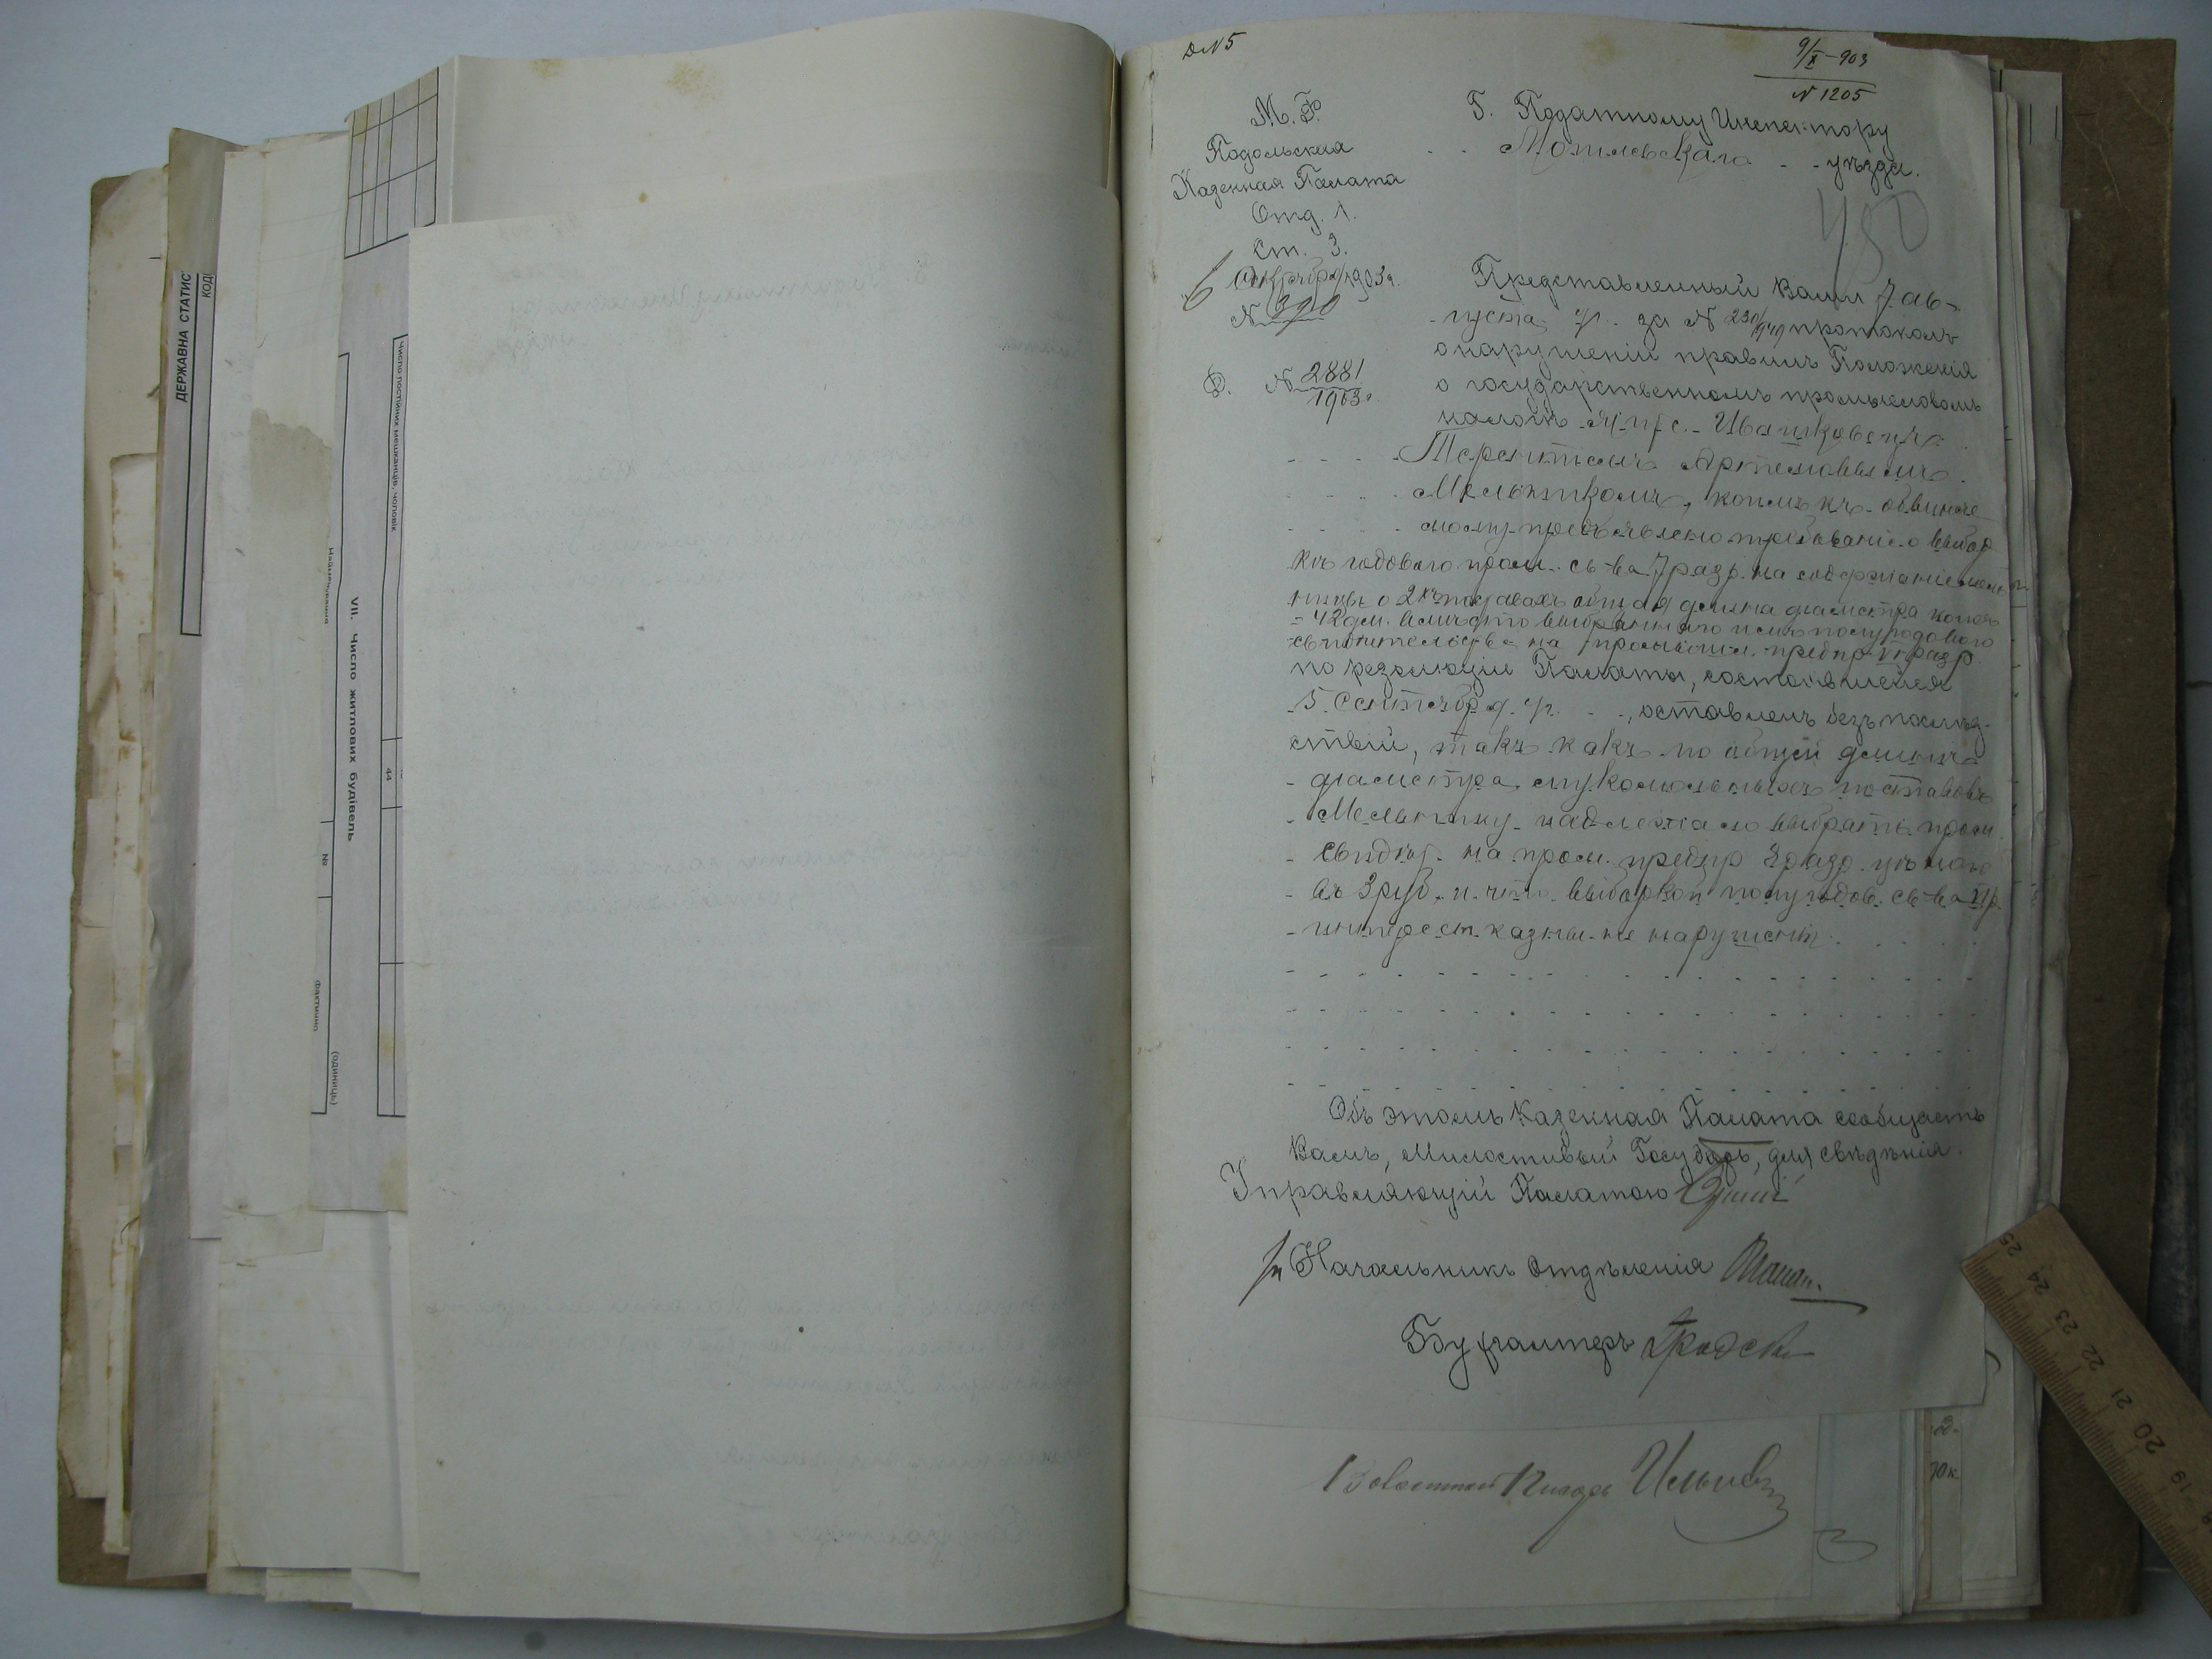 ДЕРЖАВНА СТАТИС
КОД
VII. Число житлових будівель
Число постійних мешканців, чоловік
Найменування
№
Фактично
(одиниць)
44
Д N 5
9/X - 903
N 1205
М. Ф.
Подольская
Казенная Палата
Отд. 1.
Ст. 3.
6 Октября 1903 г.
N 390
Д. N 2881
1903 г.
Г. Податному Инспектору
Могилевскаго уѣзда.
450
Представленный Вами 7 ав-
густа с. г. за N 230/949 протоколъ
о нарушеніи правилъ Положенія
о государственномъ промысловомъ
налогѣ с. Ивашковецъ
Терентіемъ Артемовымъ
Мельникомъ, коимъ къ обвиняе
мому предъявлено требованіе о выбор
кѣ годового пром. св-ва 7 разр. на содержаніе мель
ницы о 2хъ поставахъ общая длина діаметра коихъ
= 42 дм. вмѣсто выбраннаго имъ полугодового
свидѣтельства на промышл. предпр. VII разр.
по резолюціи Палаты, состоявшейся
5 Сентября с. г., оставленъ безъ послѣд-
ствій, такъ какъ по общей длинѣ
діаметра мукомольныхъ поставовъ
Мельнику надлежало выбрать пром.
свидѣт. на пром. предпр 8 разр. цѣною
въ 3 руб. и что выборкой полугодов. св-ва VII р.
интересы казны не нарушены.
Объ этомъ Казенная Палата сообщаетъ
Вамъ, Милостивый Государь, для свѣдѣнія.
Управляющій Палатою
Начальникъ Отдѣленія
Бухгалтеръ
Волостной Писарь
70 к.
25 24 23 22 21 20 19